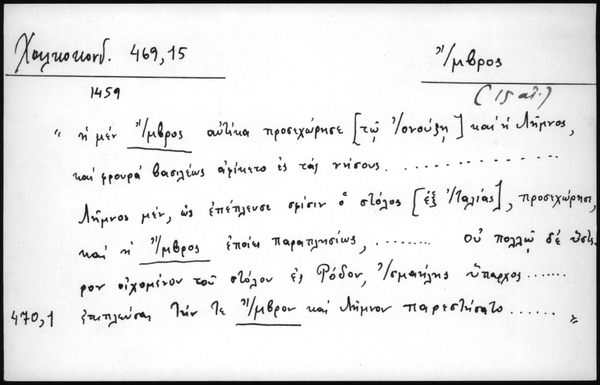 Χαλκοκονδ. 469,15
Ἴμβρος
1459
(15 αἰ.)
" ἡ μέν Ἴμβρος αὐτίκα προσεχώρησε [τῷ Ἰονούζῃ] καί ἡ Λῆμνος,
καί φρουρά βασιλέως ἀφίκετο ἐς τάς νήσους. . . . . . . . . . . . . . .
Λῆμνος μέν, ὡς ἐπέπλευσε σφίσιν ὁ στόλος [ἐξ Ἰταλίας], προσεχώρησε,
καί ἡ Ἴμβρος ἐποίει παραπλησίως, . . . . . . . . οὐ πολλῷ δέ ὕστε-
ρον οἰχομένου τοῦ στόλου ἐς Ῥόδον, Ἰσμαήλης ὕπαρχος . . . . . . .
470,1 ἐπιπλεύσας τήν τε Ἴμβρον καί Λῆμνον παρεστήσατο . . . . . . "